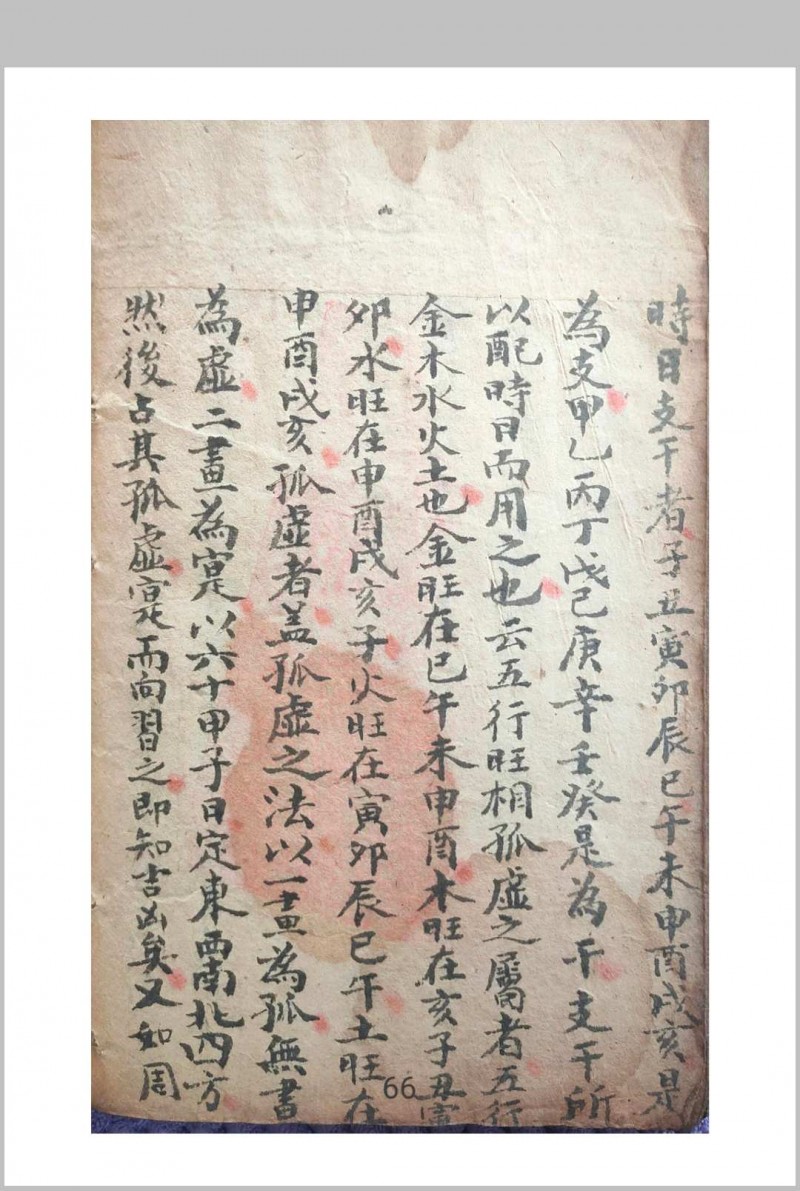 時日支干者子丑寅卯辰巳午未申酉戌亥是
為支甲乙丙丁戊己庚辛壬癸是為干支干所
以配時日而用之也云五行旺相孤虛之屬者五行
金木水火土也金旺在巳午未申酉木旺在亥子丑寅
卯水旺在申酉戌亥子火旺在寅卯辰巳午土旺在
申酉戌亥孤虛者盖孤虛之法以一畫為孤無書
為虛二畫為寔以六十甲子日定東西南北四方
然後占其孤虛寔而向習之即知吉凶矣又如周
66